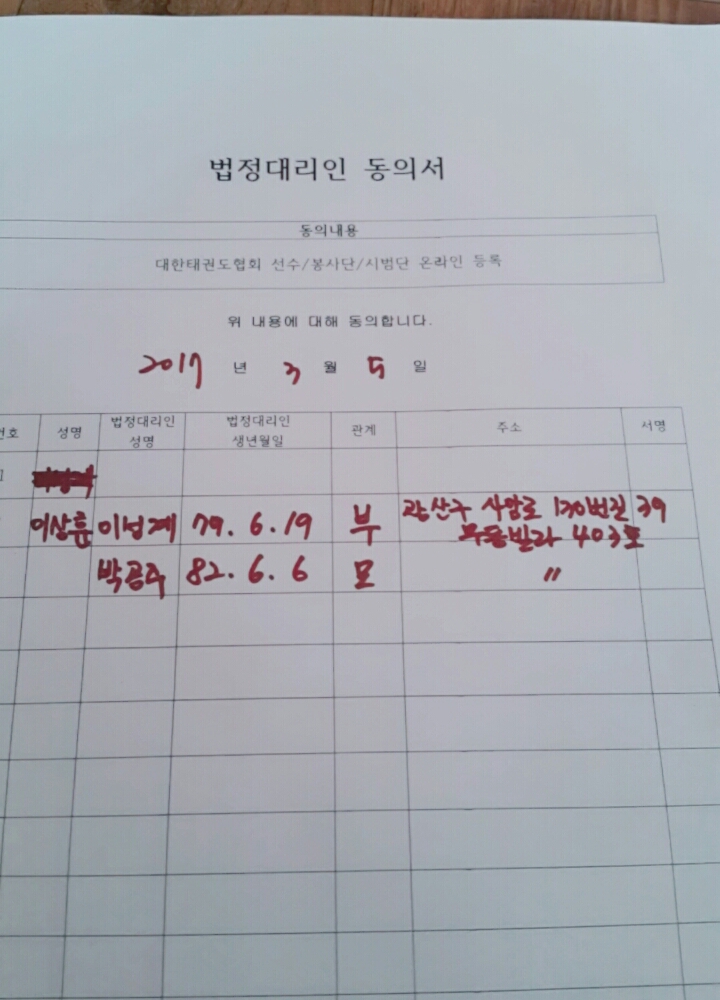 법정대리인 동의서
동의내용
대한태권도협회 선수/봉사단/시범단 온라인 등록
위 내용에 대해 동의합니다.
2017 년 3 월 5 일
번호 성명 법정대리인 성명 법정대리인 생년월일 관계 주소 서명
1
이상훈 이성계 79. 6. 19 부 광산구 사암로 130번길 39
빌라 403호
박공주 82. 6. 6 모 〃